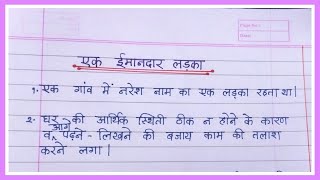 एक ईमानदार लड़का
१. एक गांव में नरेश नाम का एक लड़का रहता था।
२. घर की आर्थिक स्थिती ठीक न होने के कारण
वह आगे पढ़ने - लिखने की बजाय काम की तलाश
करने लगा।